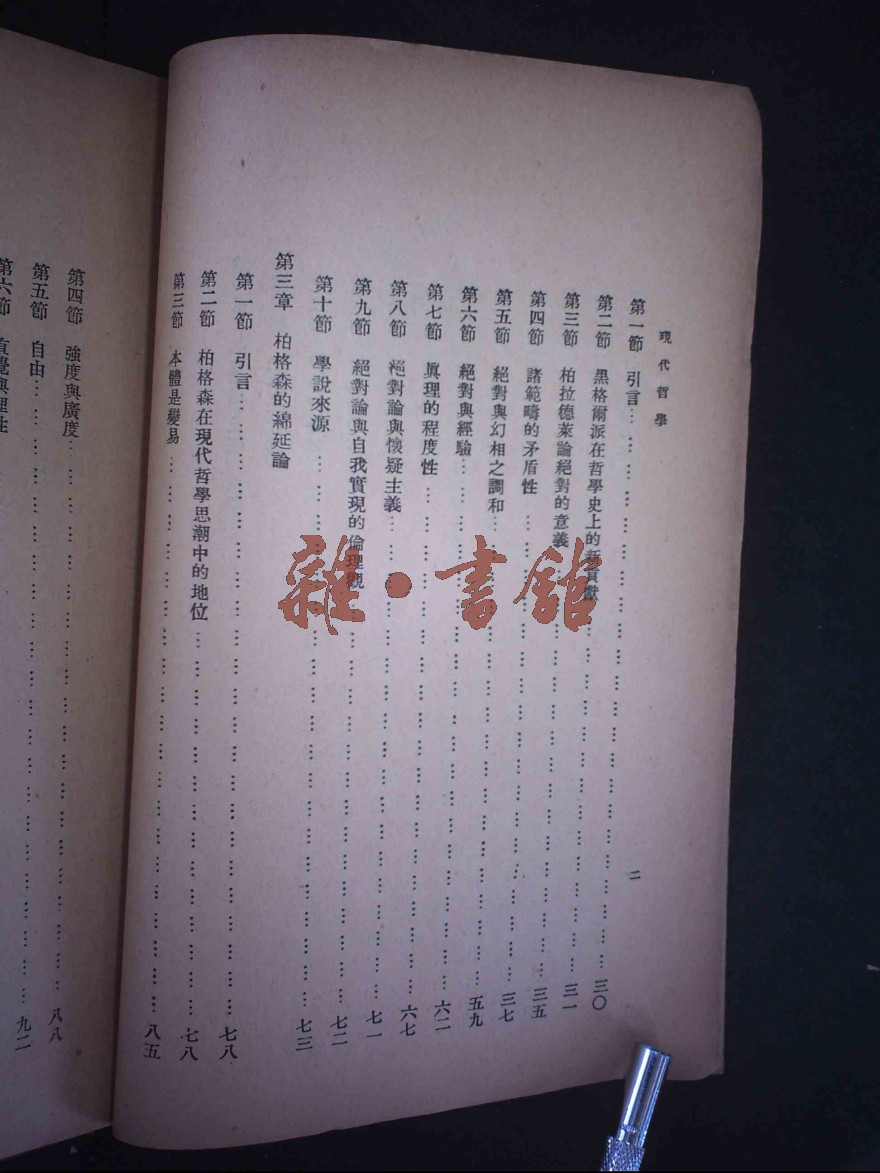 現代哲學 二
第一節 引言………………三〇
第二節 黑格爾派在哲學史上的新貢獻………………三一
第三節 柏拉德萊論絕對的意義………………三五
第四節 諸範疇的矛盾性………………三七
第五節 絕對與幻相之調和………………五九
第六節 絕對與經驗………………六二
第七節 眞理的程度性………………六七
第八節 絕對論與懷疑主義………………七一
第九節 絕對論與自我實現的倫理觀………………七二
第十節 學說來源………………七三
第三章 柏格森的綿延論
第一節 引言………………七八
第二節 柏格森在現代哲學思潮中的地位………………七八
第三節 本體是變易………………八五
第四節 強度與廣度………………八八
第五節 自由………………九二
第六節 直覺與理性
雜·書館